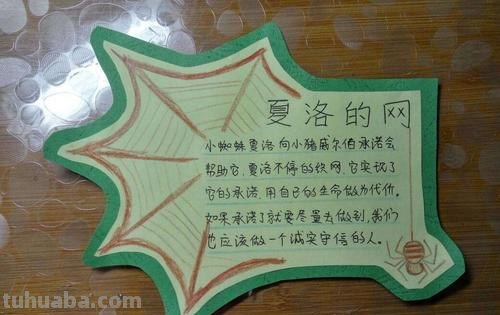 夏洛的网
小蜘蛛夏洛向小猪威尔伯承诺会
帮助它,夏洛不停的织网,它实现了
它的承诺,用自己的生命做为代价,
如果承诺了就要尽量去做到,我们
也应该做一个诚实守信的人。
tuhuaba.com